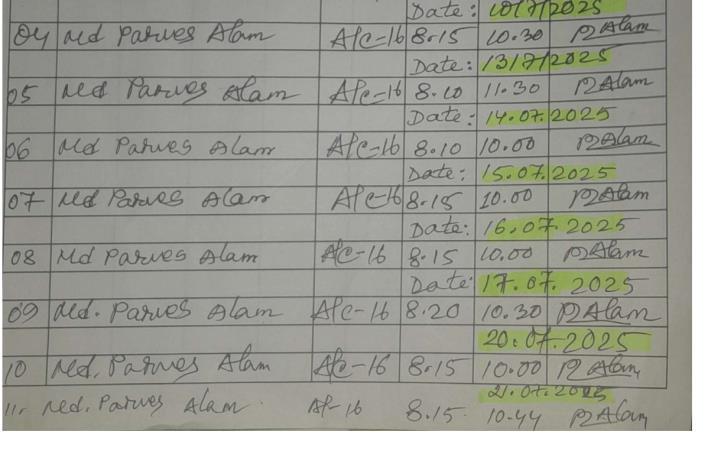 Date: 10/7/2025
04 Md Parves Alam A/c-16 8.15 10.30 PAlam
Date: 13/7/2025
05 Md Parves Alam A/c-16 8.10 11.30 PAlam
Date: 14.07.2025
06 Md Parves Alam A/c-16 8.10 10.00 PAlam
Date: 15.07.2025
07 Md Parves Alam A/c-16 8.15 10.00 PAlam
Date: 16.07.2025
08 Md Parves Alam A/c-16 8.15 10.00 PAlam
Date: 17.07.2025
09 Md. Parves Alam A/c-16 8.20 10.30 PAlam
20.07.2025
10 Md. Parves Alam A/c-16 8.15 10.00 PAlam
21.07.2025
11. Md. Parves Alam. A/-16 8.15. 10.44 PAlam